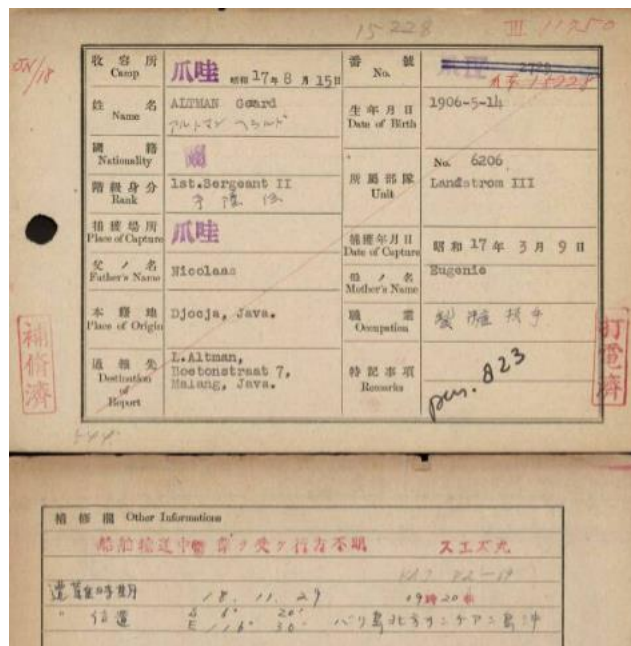 15228 III 11950
JN/18
收容所 Camp 爪哇 昭和 17 年 8 月 15 日
番號 No. 2728 15228
姓名 Name ALTMAN Geard
アルトマン ヘラルド
生年月日 Date of Birth 1906-5-14
國籍 Nationality
階級身分 Rank 1st.Sergeant II
所屬部隊 Unit No. 6206
Landstrom III
捕獲場所 Place of Capture 爪哇
捕獲年月日 Date of Capture 昭和 17 年 3 月 9 日
父ノ名 Father's Name Nicolaas
母ノ名 Mother's Name Eugenie
本籍地 Place of Origin Djocja, Java.
職業 Occupation
通報先 Destination of Report L.Altman,
Boetonstraat 7,
Malang, Java.
特記事項 Remarks 823
補修濟
打電濟
補修欄 Other Informations
船舶輸送中 ヲ受ケ行方不明 スエズ丸
遭難時期 18. 11. 29 09時20分
〃 位置 S 6° 20'
E 116° 30' バリ島北方カンヂアン島沖